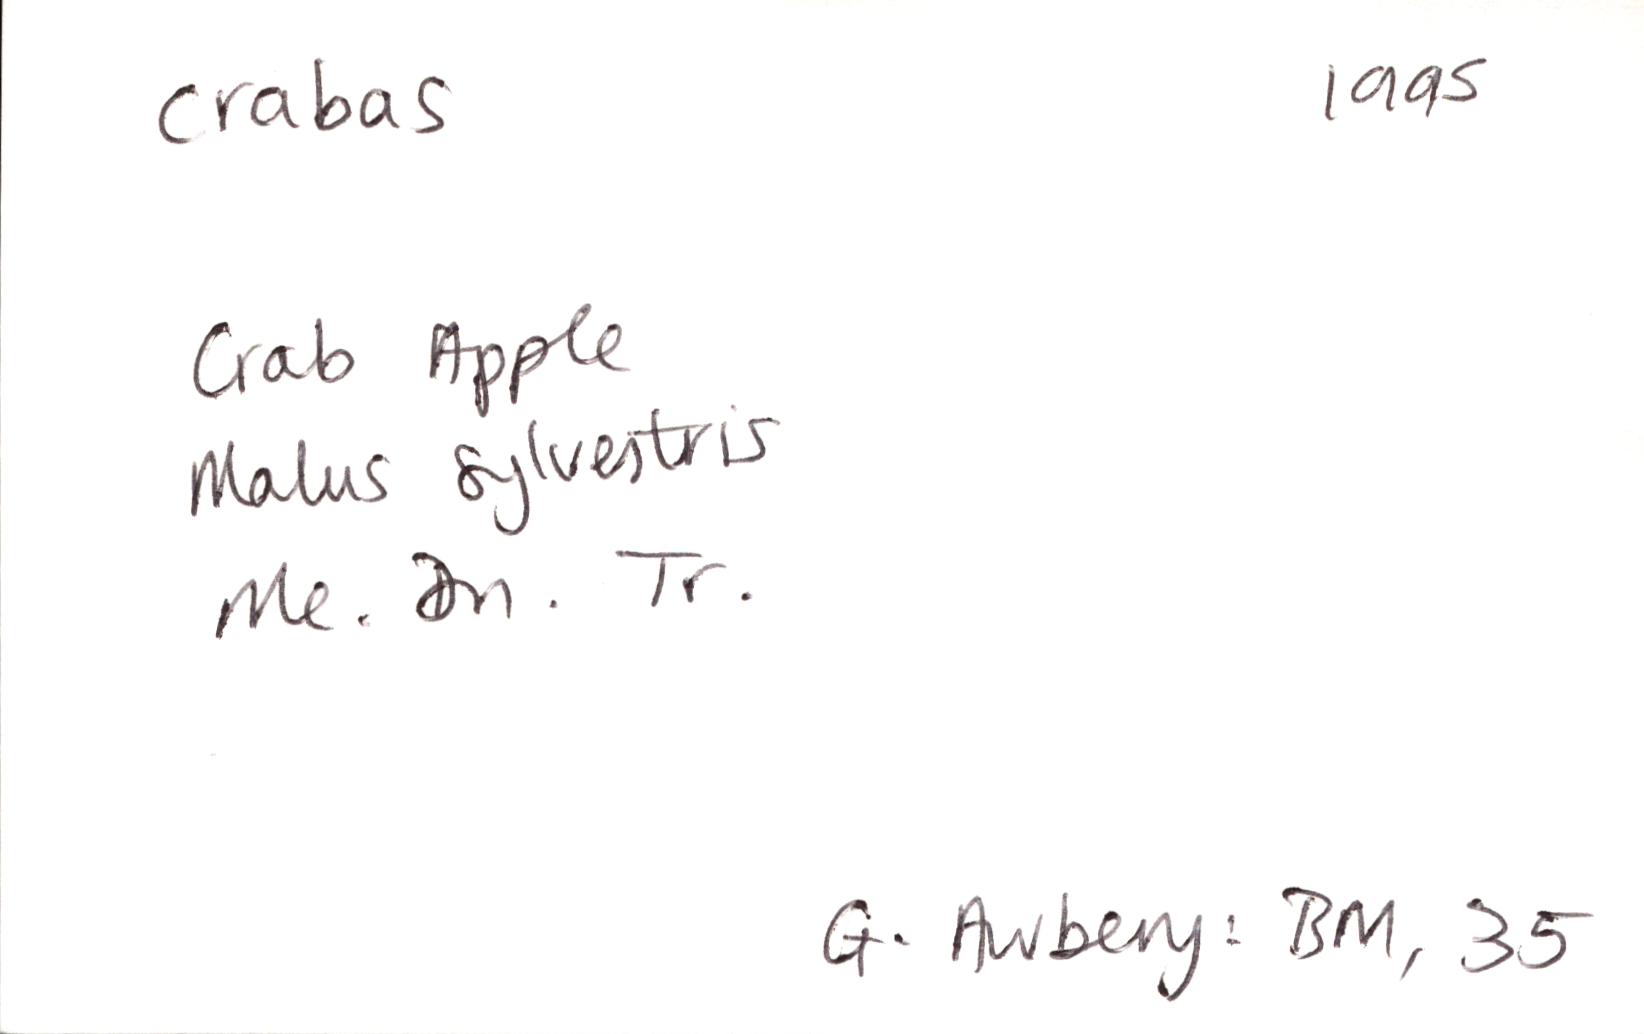 crabas 1995
Crab Apple
Malus sylvestris
Me. Dn. Tr.
G. Awbery: BM, 35